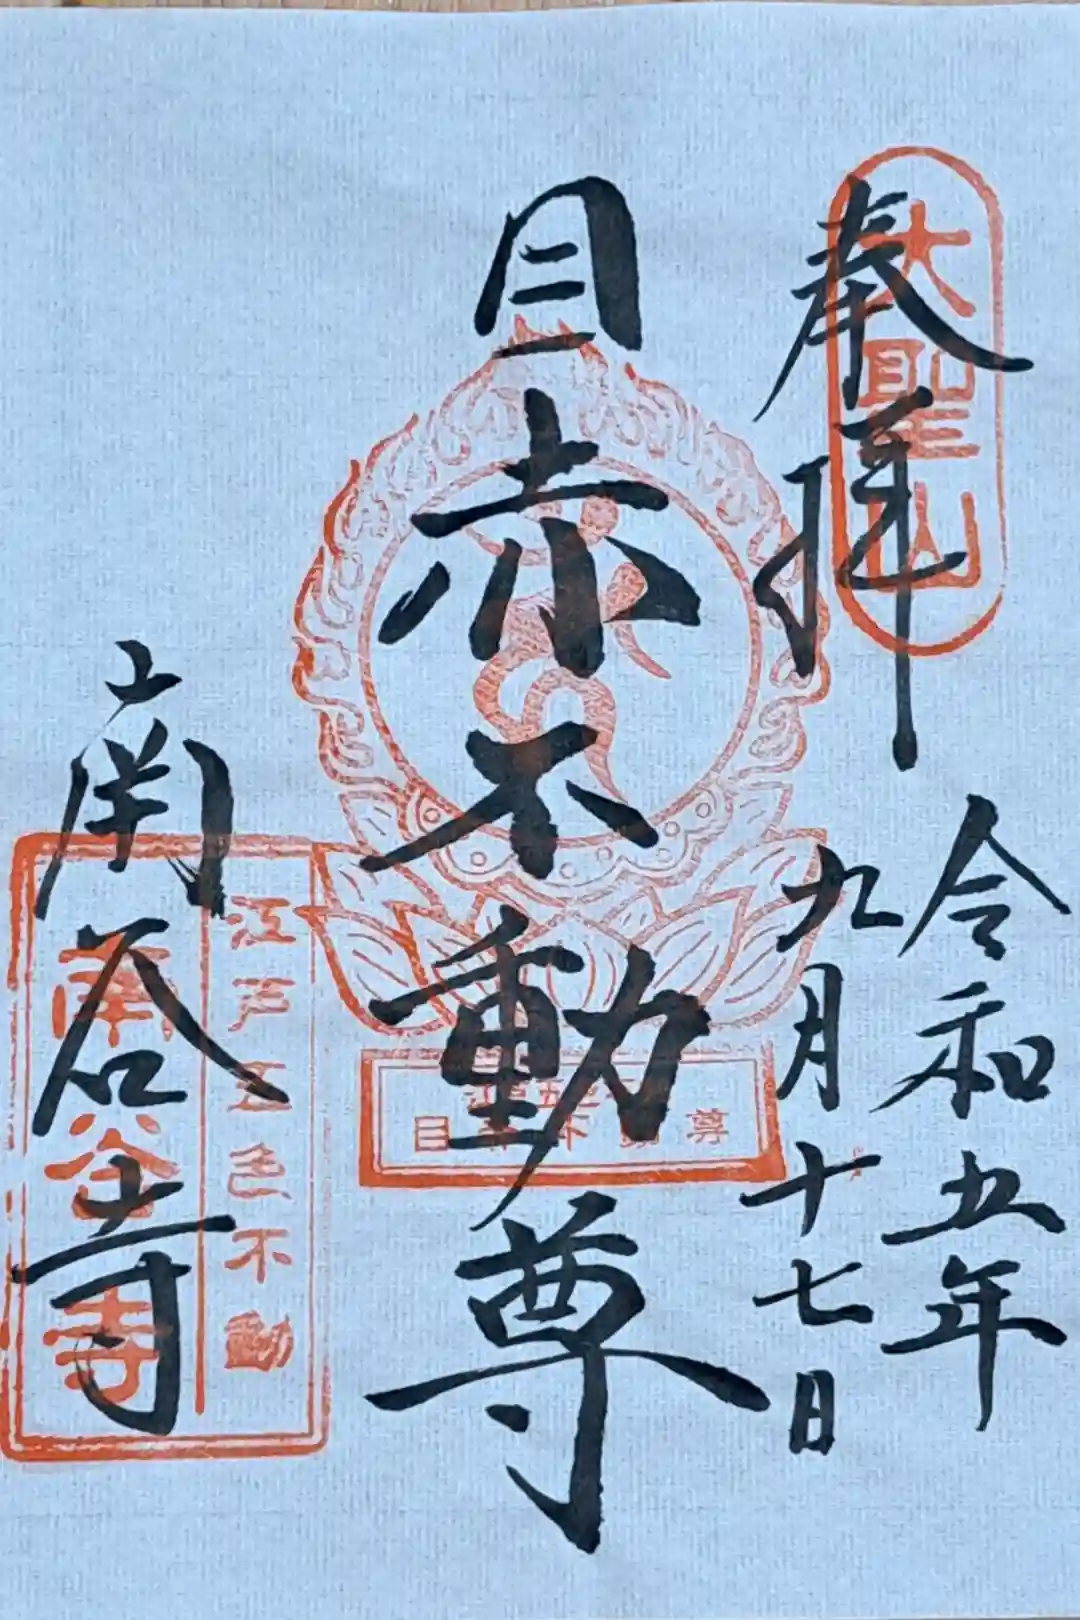 奉拝
大聖山
令和五年
九月十七日
目赤不動尊
南谷寺
江戸五色不動
南谷寺